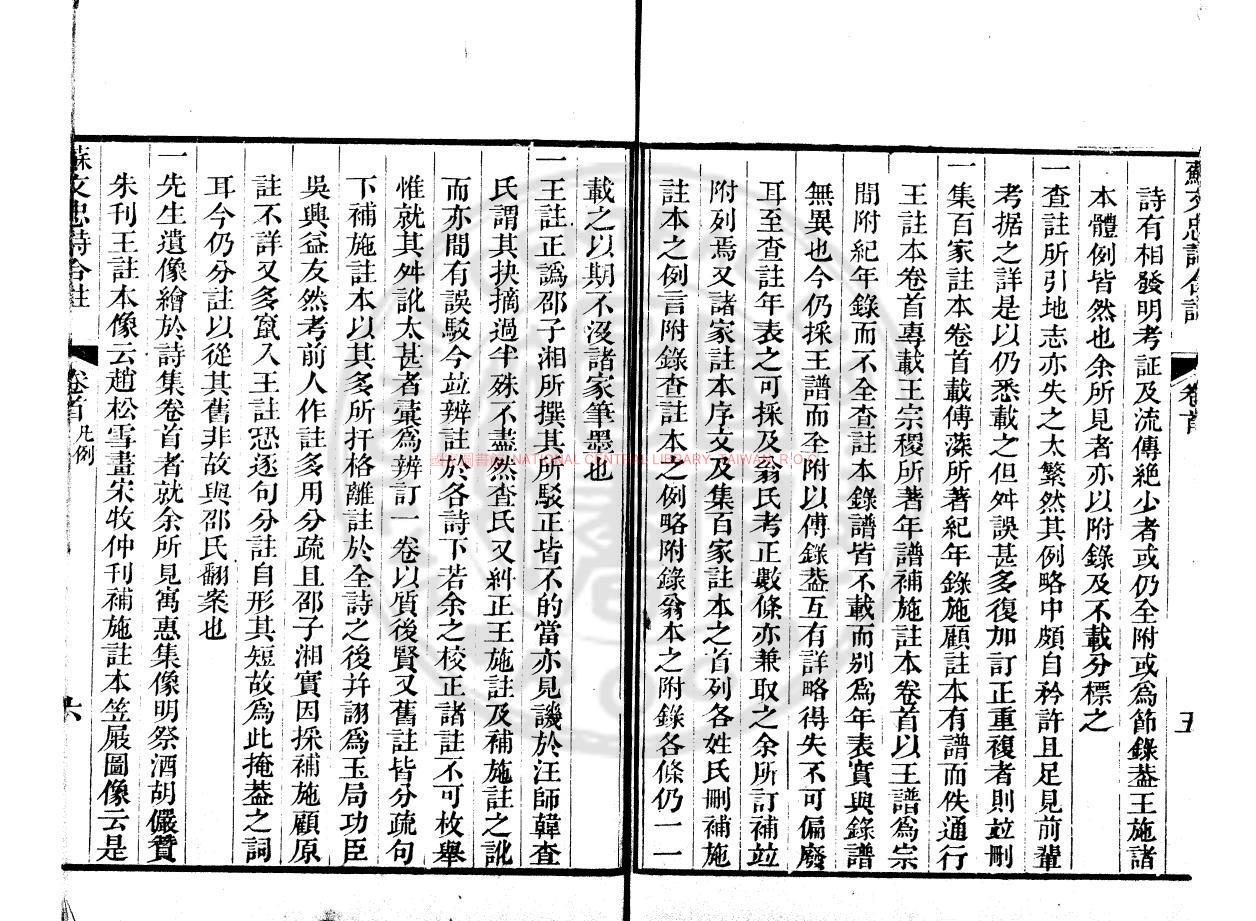 蘇文忠詩合註
卷首
五
詩有相發明考証及流傳絕少者或仍全附或爲節錄葢王施諸
本體例皆然也余所見者亦以附錄及不載分標之
一查註所引地志亦失之太繁然其例略中頗自矜許且足見前輩
考据之詳是以仍悉載之但舛誤甚多復加訂正重複者則竝刪
一集百家註本卷首載傅藻所著紀年錄施顧註本有譜而佚通行
王註本卷首專載王宗稷所著年譜補施註本卷首以王譜爲宗
間附紀年錄而不全查註本錄譜皆不載而别爲年表實與錄譜
無異也今仍採王譜而全附以傅錄葢互有詳略得失不可偏廢
耳至查註年表之可採及翁氏考正數條亦兼取之余所訂補竝
附列焉又諸家註本序文及集百家註本之首列各姓氏刪補施
註本之例言附錄查註本之例略附錄翁本之附錄各條仍一一
載之以期不沒諸家筆墨也
一王註正譌邵子湘所撰其所駁正皆不的當亦見譏於汪師韓查
氏謂其抉摘過半殊不盡然查氏又糾正王施註及補施註之訛
而亦間有誤駁今竝辨註於各詩下若余之校正諸註不可枚舉
惟就其舛訛太甚者彙爲辨訂一卷以質後賢又舊註皆分疏句
下補施註本以其多所扞格離註於全詩之後并詡爲玉局功臣
吳興益友然考前人作註多用分疏且邵子湘實因採補施顧原
註不詳又多竄入王註恐逐句分註自形其短故爲此掩葢之詞
耳今仍分註以從其舊非故與邵氏翻案也
一先生遺像繪於詩集卷首者就余所見寓惠集像明祭酒胡儼贊
朱刊王註本像云趙松雪畫宋牧仲刊補施註本笠屐圖像云是
蘇文忠詩合註
卷首 凡例
六
國家圖書館 NATIONAL CENTRAL LIBRARY, TAIWAN R.O.C